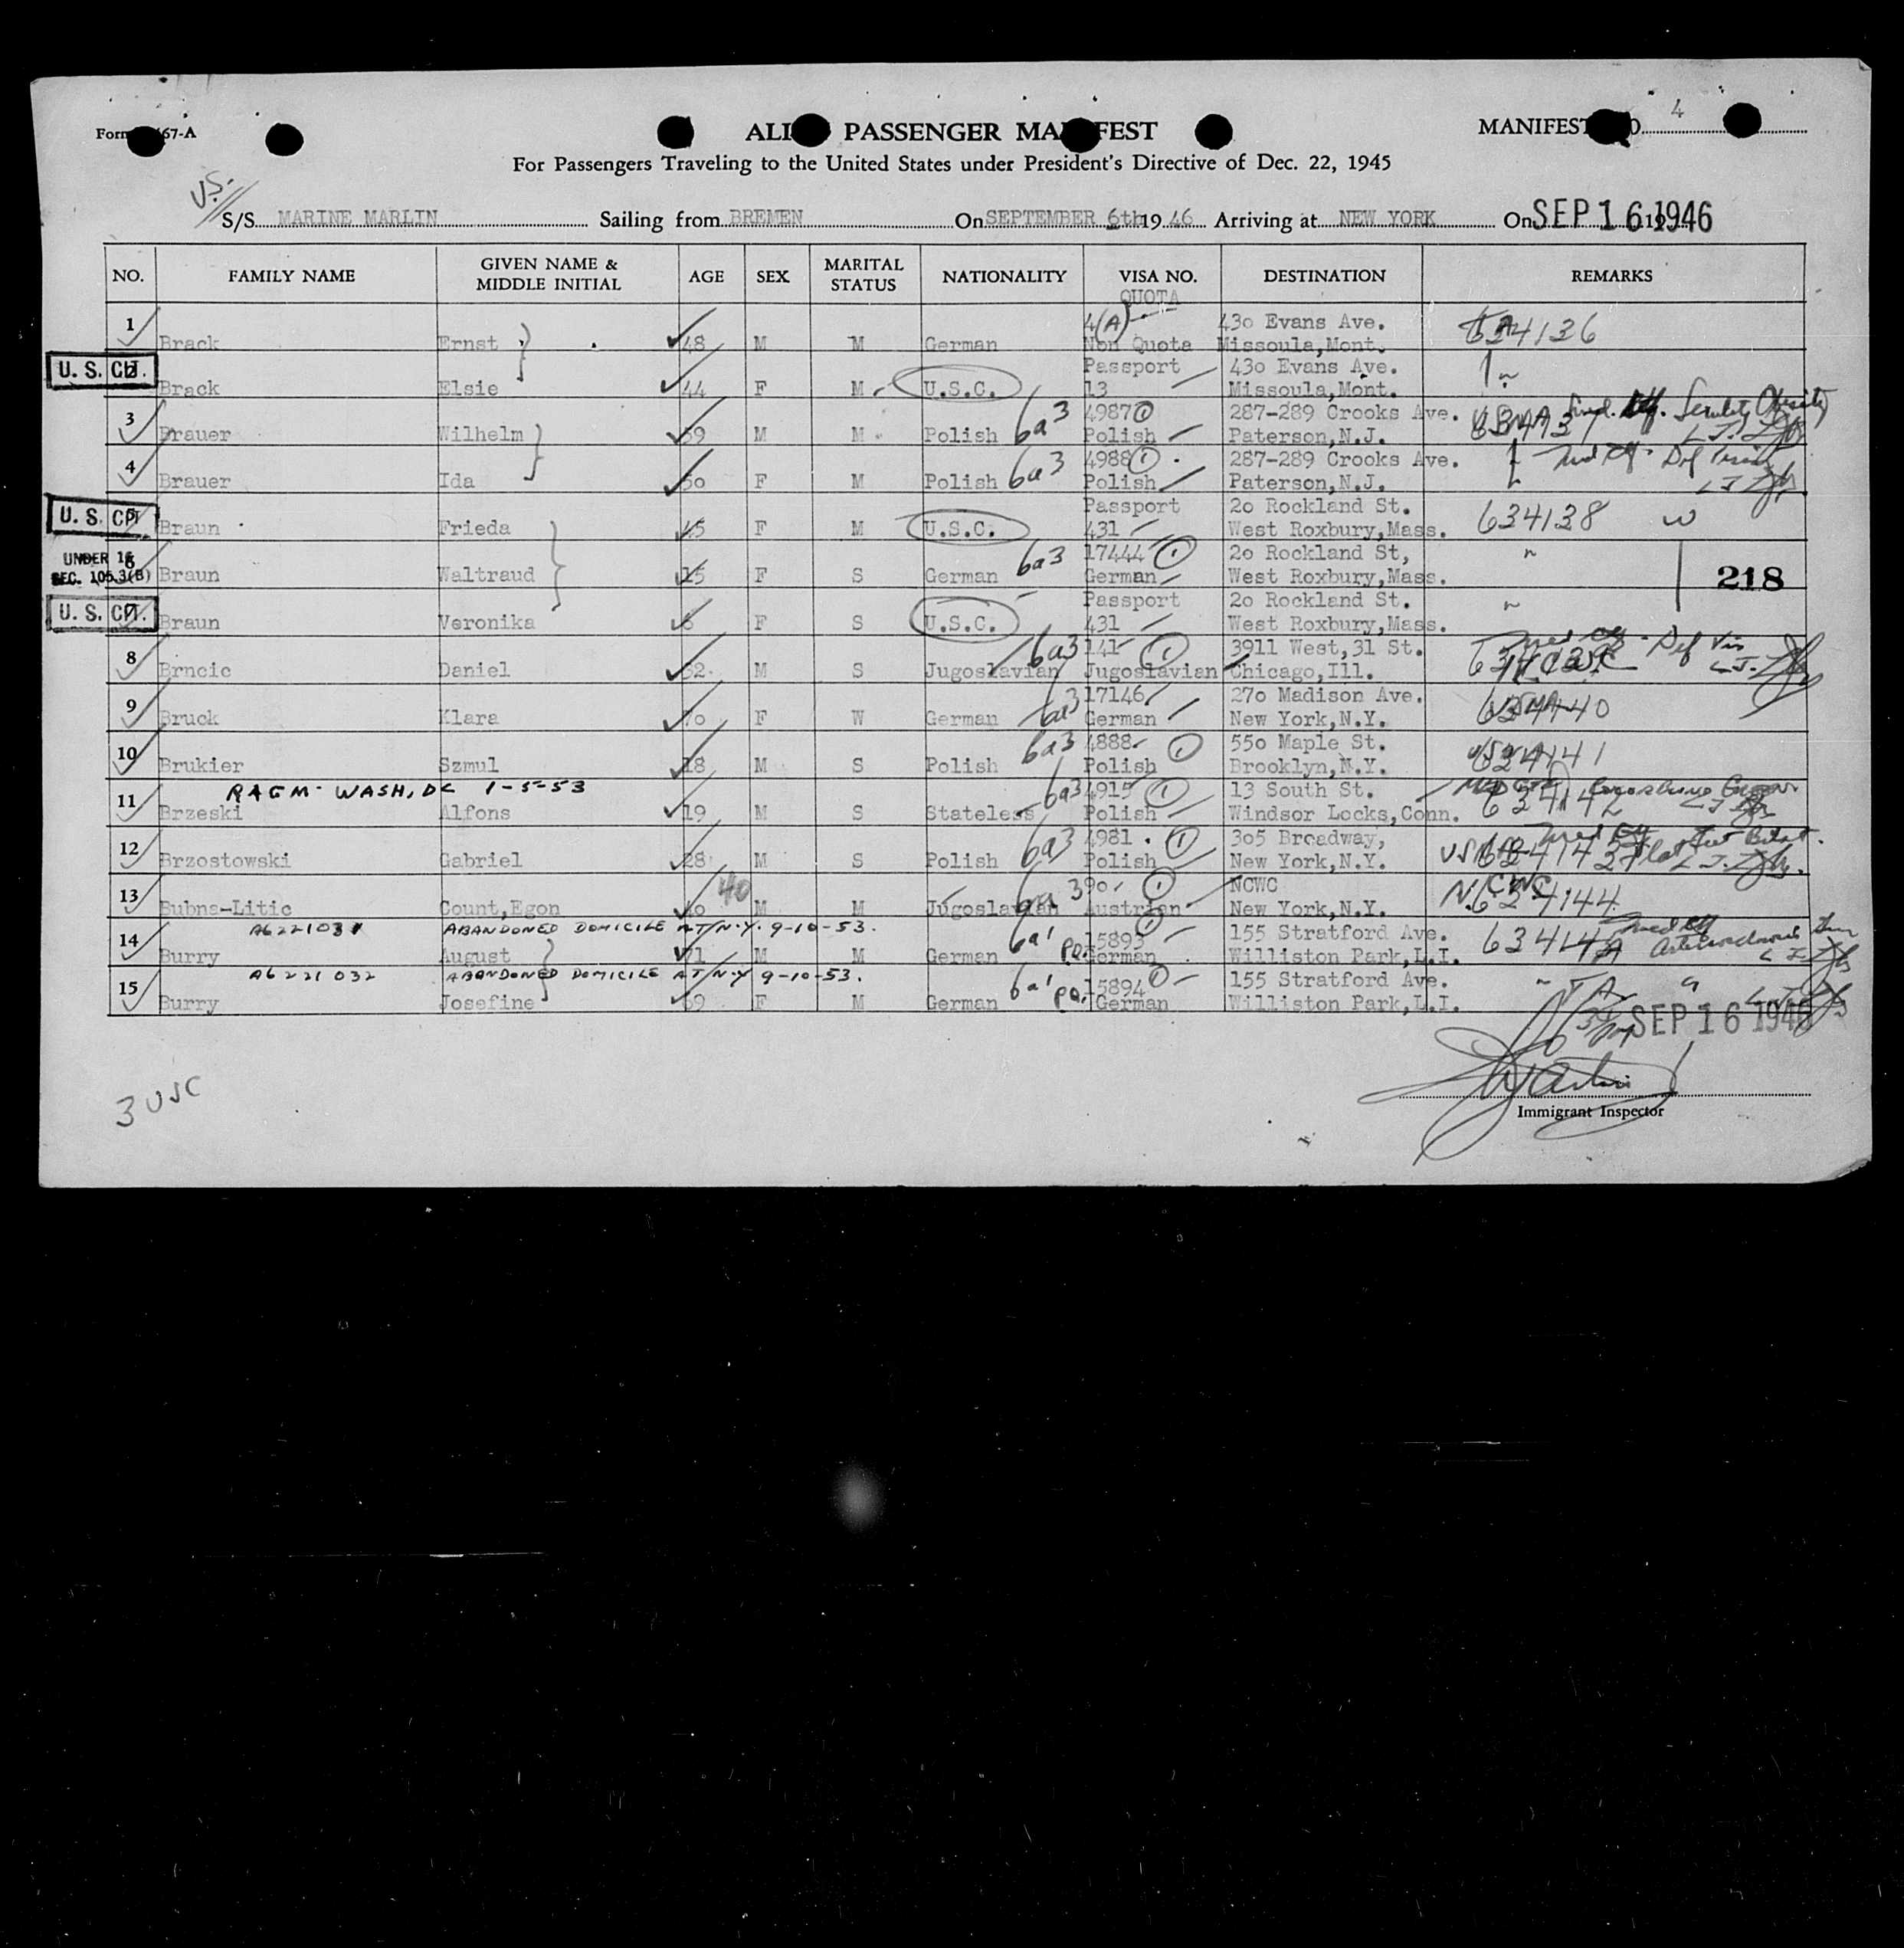 Form 67-A
ALI PASSENGER MA FEST
MANIFEST O. 4
For Passengers Traveling to the United States under President's Directive of Dec. 22, 1945
U.S.
S/S MARINE MARLIN Sailing from BREMEN On SEPTEMBER 6th 19 46 Arriving at NEW YORK On SEP 16 1946
NO. FAMILY NAME GIVEN NAME & MIDDLE INITIAL AGE SEX MARITAL STATUS NATIONALITY VISA NO. DESTINATION REMARKS
QUOTA
1 4(A) 430 Evans Ave. 634136
Brack Ernst 48 M M German Non Quota Missoula,Mont.
U. S. CIT. Passport 430 Evans Ave.
Brack Elsie 44 F M U.S.C. 13 Missoula,Mont. "
3 6a3 4987 ① 287-289 Crooks Ave. Senility Obesity
Brauer Wilhelm 59 M M Polish Polish Paterson,N.J.
4 6a3 4988 ① 287-289 Crooks Ave.
Brauer Ida 50 F M Polish Polish Paterson,N.J.
U. S. CIT. Passport 20 Rockland St. 634138 W
Braun Frieda 45 F M U.S.C. 431 West Roxbury,Mass.
UNDER 16 6 6a3 17444 ① 20 Rockland St, "
SEC. 105.3(B) Braun Waltraud 15 F S German German West Roxbury,Mass. 218
U. S. CIT. Passport 20 Rockland St. "
Braun Veronika 6 F S U.S.C. 431 West Roxbury,Mass.
8 6a3 141 ① 3911 West,31 St. Def Vis
Brncic Daniel 32 M S Jugoslavian Jugoslavian Chicago,Ill.
9 6a3 17146 270 Madison Ave. 634140
Bruck Klara 70 F W German German New York,N.Y.
10 6a3 4888 ① 550 Maple St. 634141
Brukier Szmul 18 M S Polish Polish Brooklyn,N.Y.
RAGM- WASH, DC 1-5-53
11 6a3 4915 ① 13 South St. 634142
Brzeski Alfons 19 M S Stateless Polish Windsor Locks,Conn.
12 6a3 4981 ① 305 Broadway,
Brzostowski Gabriel 28 M S Polish Polish New York,N.Y.
13 40 6a3 90 ① NCWC NCWC
Bubna-Litic Count,Egon 40 M M Jugoslavian Austrian New York,N.Y. 634144
A6221031 ABANDONED DOMICILE AT N.Y. 9-10-53.
14 6a1 15893 ① 155 Stratford Ave. 634145
Burry August 71 M M German German Williston Park,L.I.
A6221032 ABANDONED DOMICILE AT N.Y 9-10-53.
15 6a1 15894 ① 155 Stratford Ave. " "
Burry Josefine 69 F M German German Williston Park,L.I.
SEP 16 1946
3 USC
Immigrant Inspector